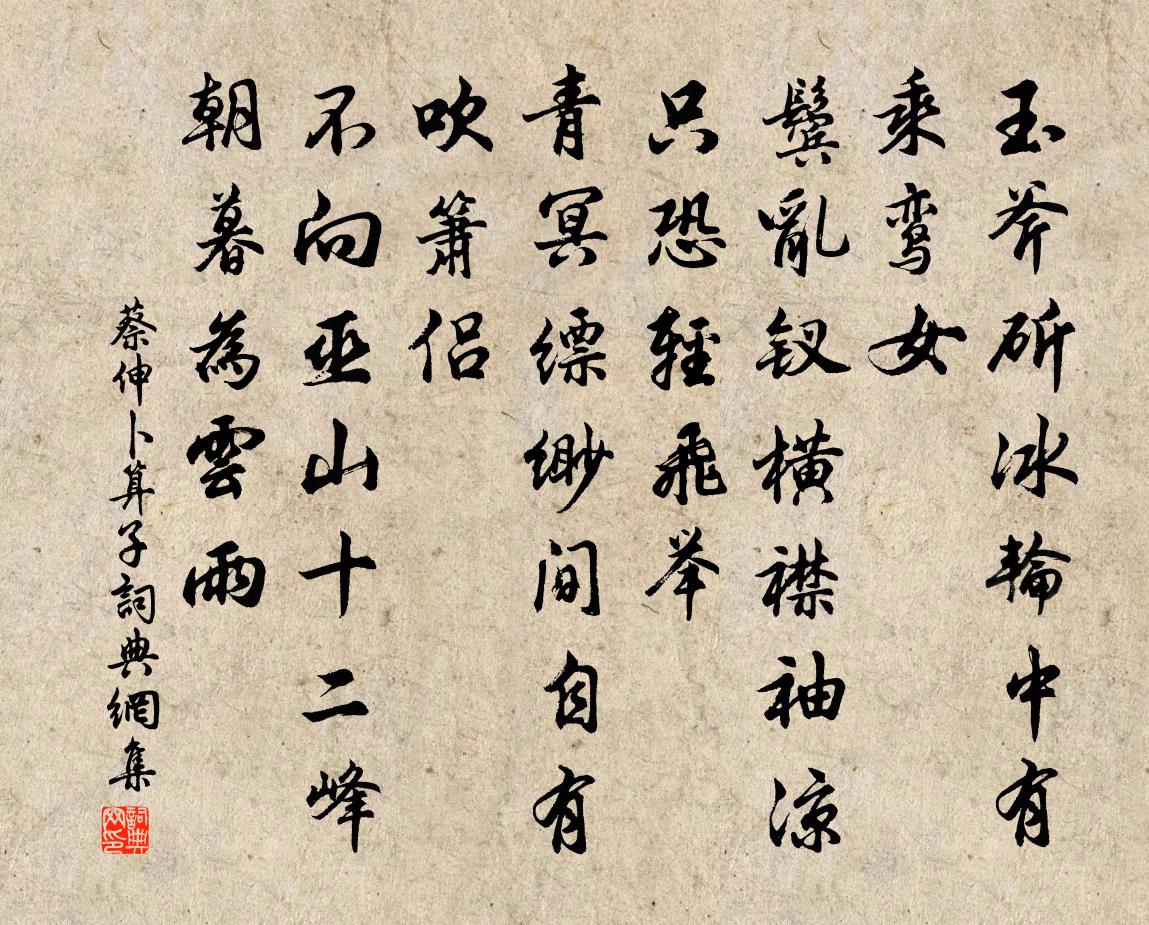 玉斧斫冰輪中有
乘鸾女
鬓亂钗横襟袖凉
只恐輕飛举
青冥缥缈间自有
吹箫侣
不向巫山十二峰
朝暮為雲雨
蔡伸卜算子詞典網集
詞典网印